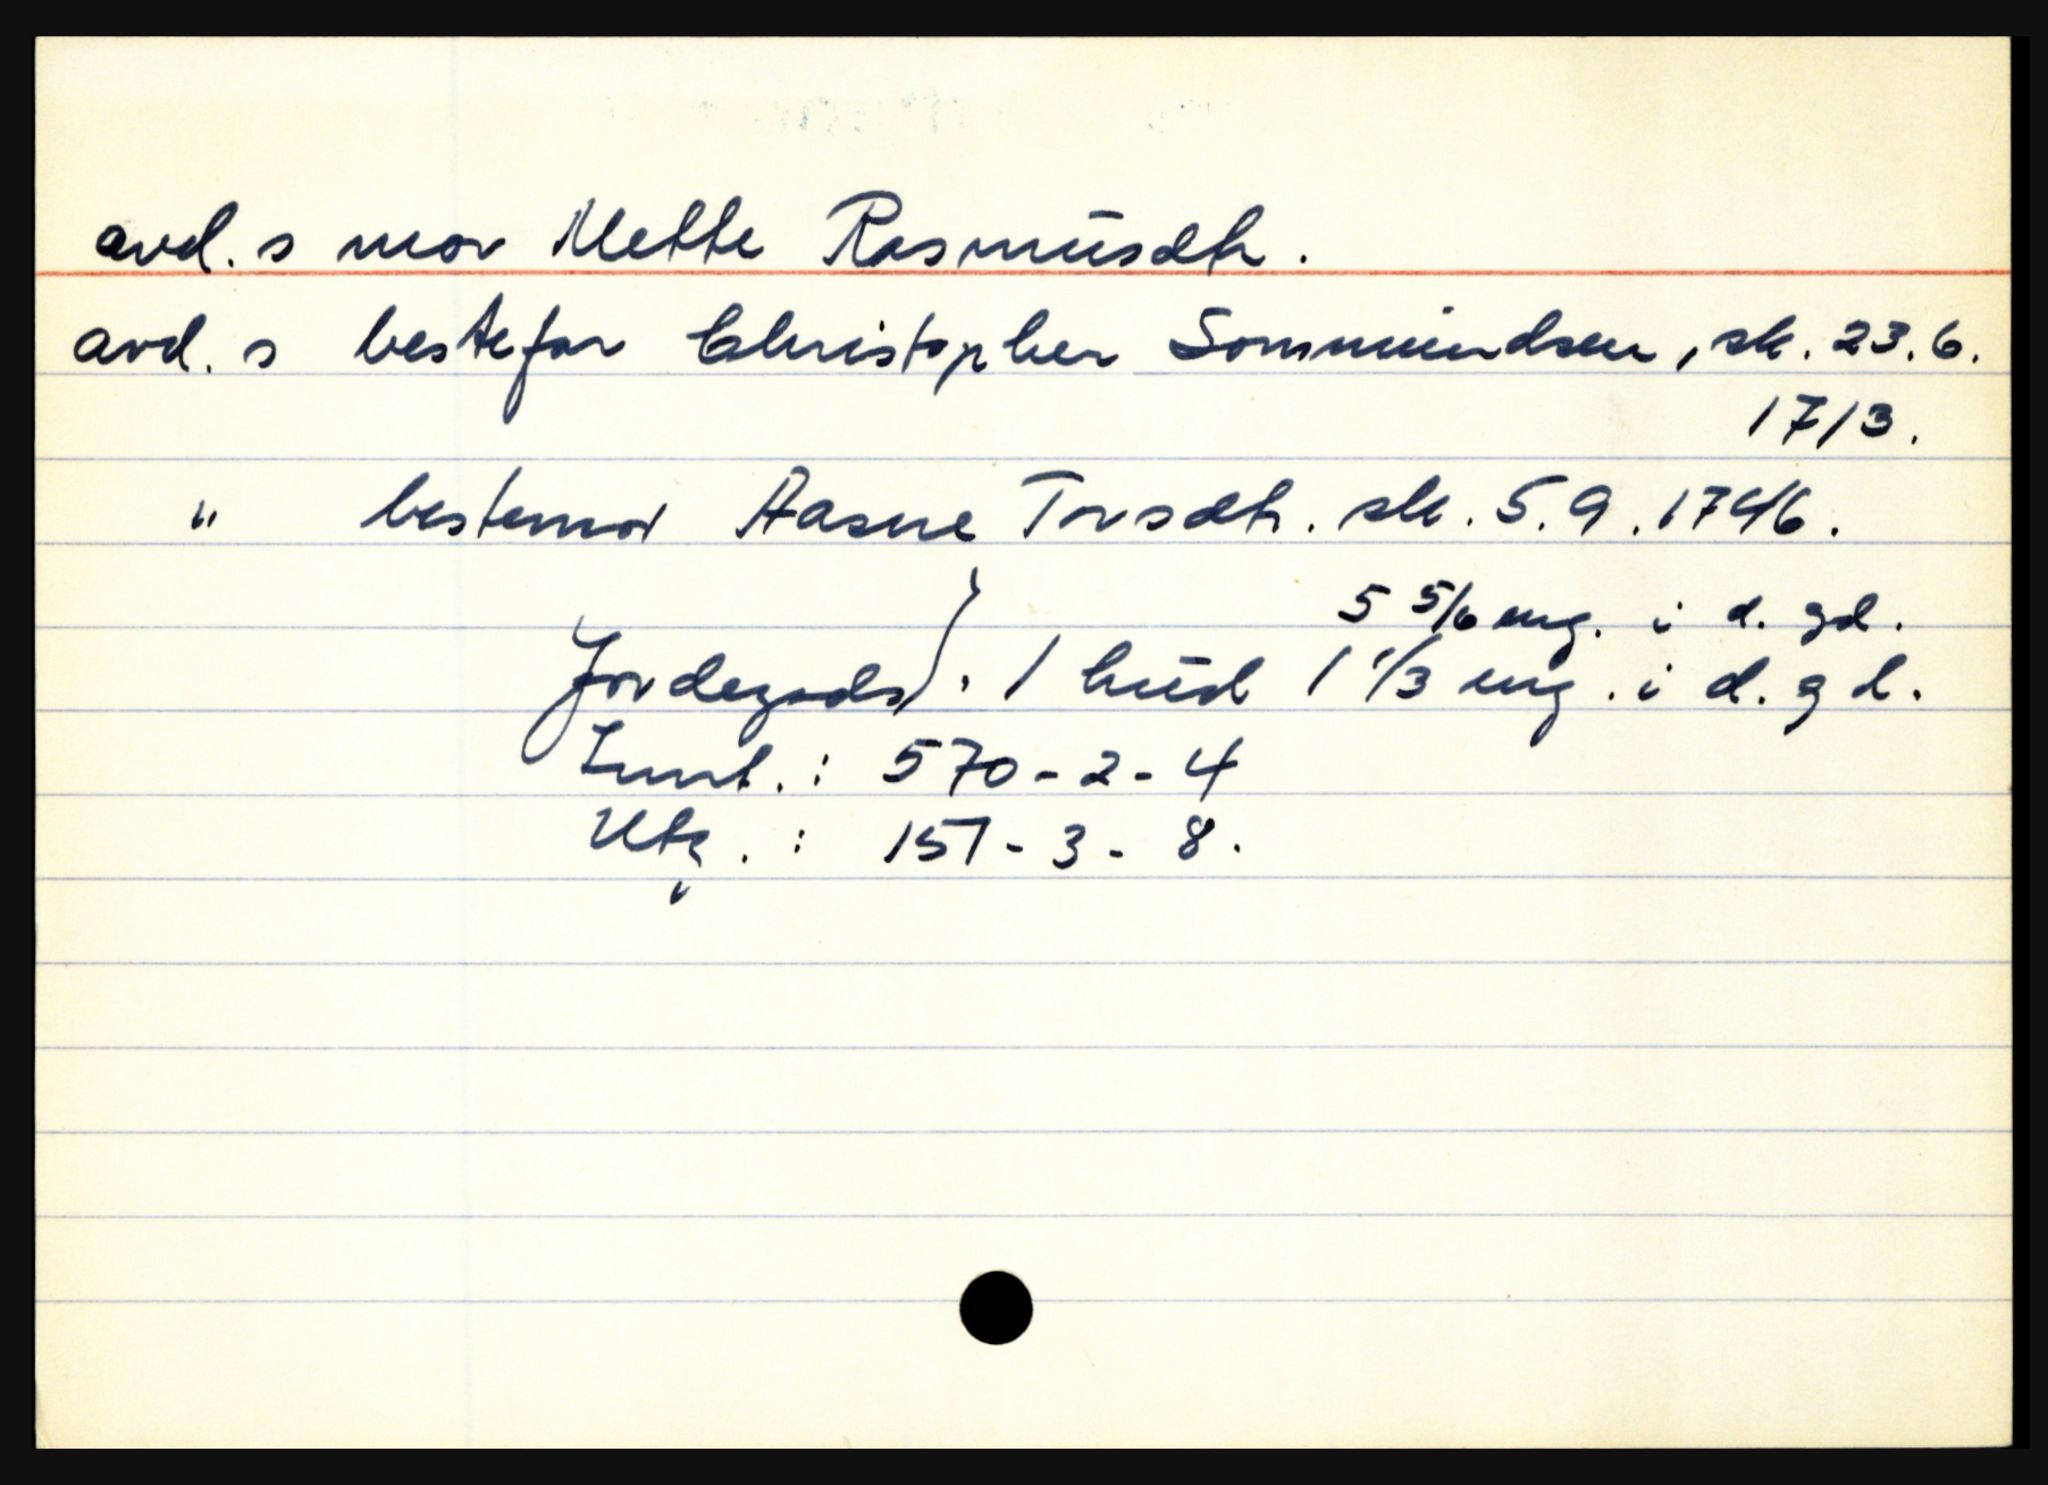 avd.s mor Mette Rasmusdtr.
avd.s bestefar Christopher Sommundsen, sk. 23.6.
1713.
" bestemor Aasne Torsdtr. sk. 5.9.1746.
5 5/6 eng. i d. gd.
Jordegods: 1 hud 1 1/3 eng. i d. gd.
Innt.: 570-2-4
Utg.: 157-3-8.